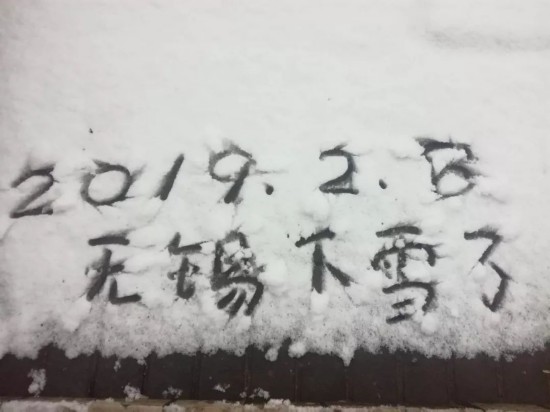 2019.2.8
无锡下雪了